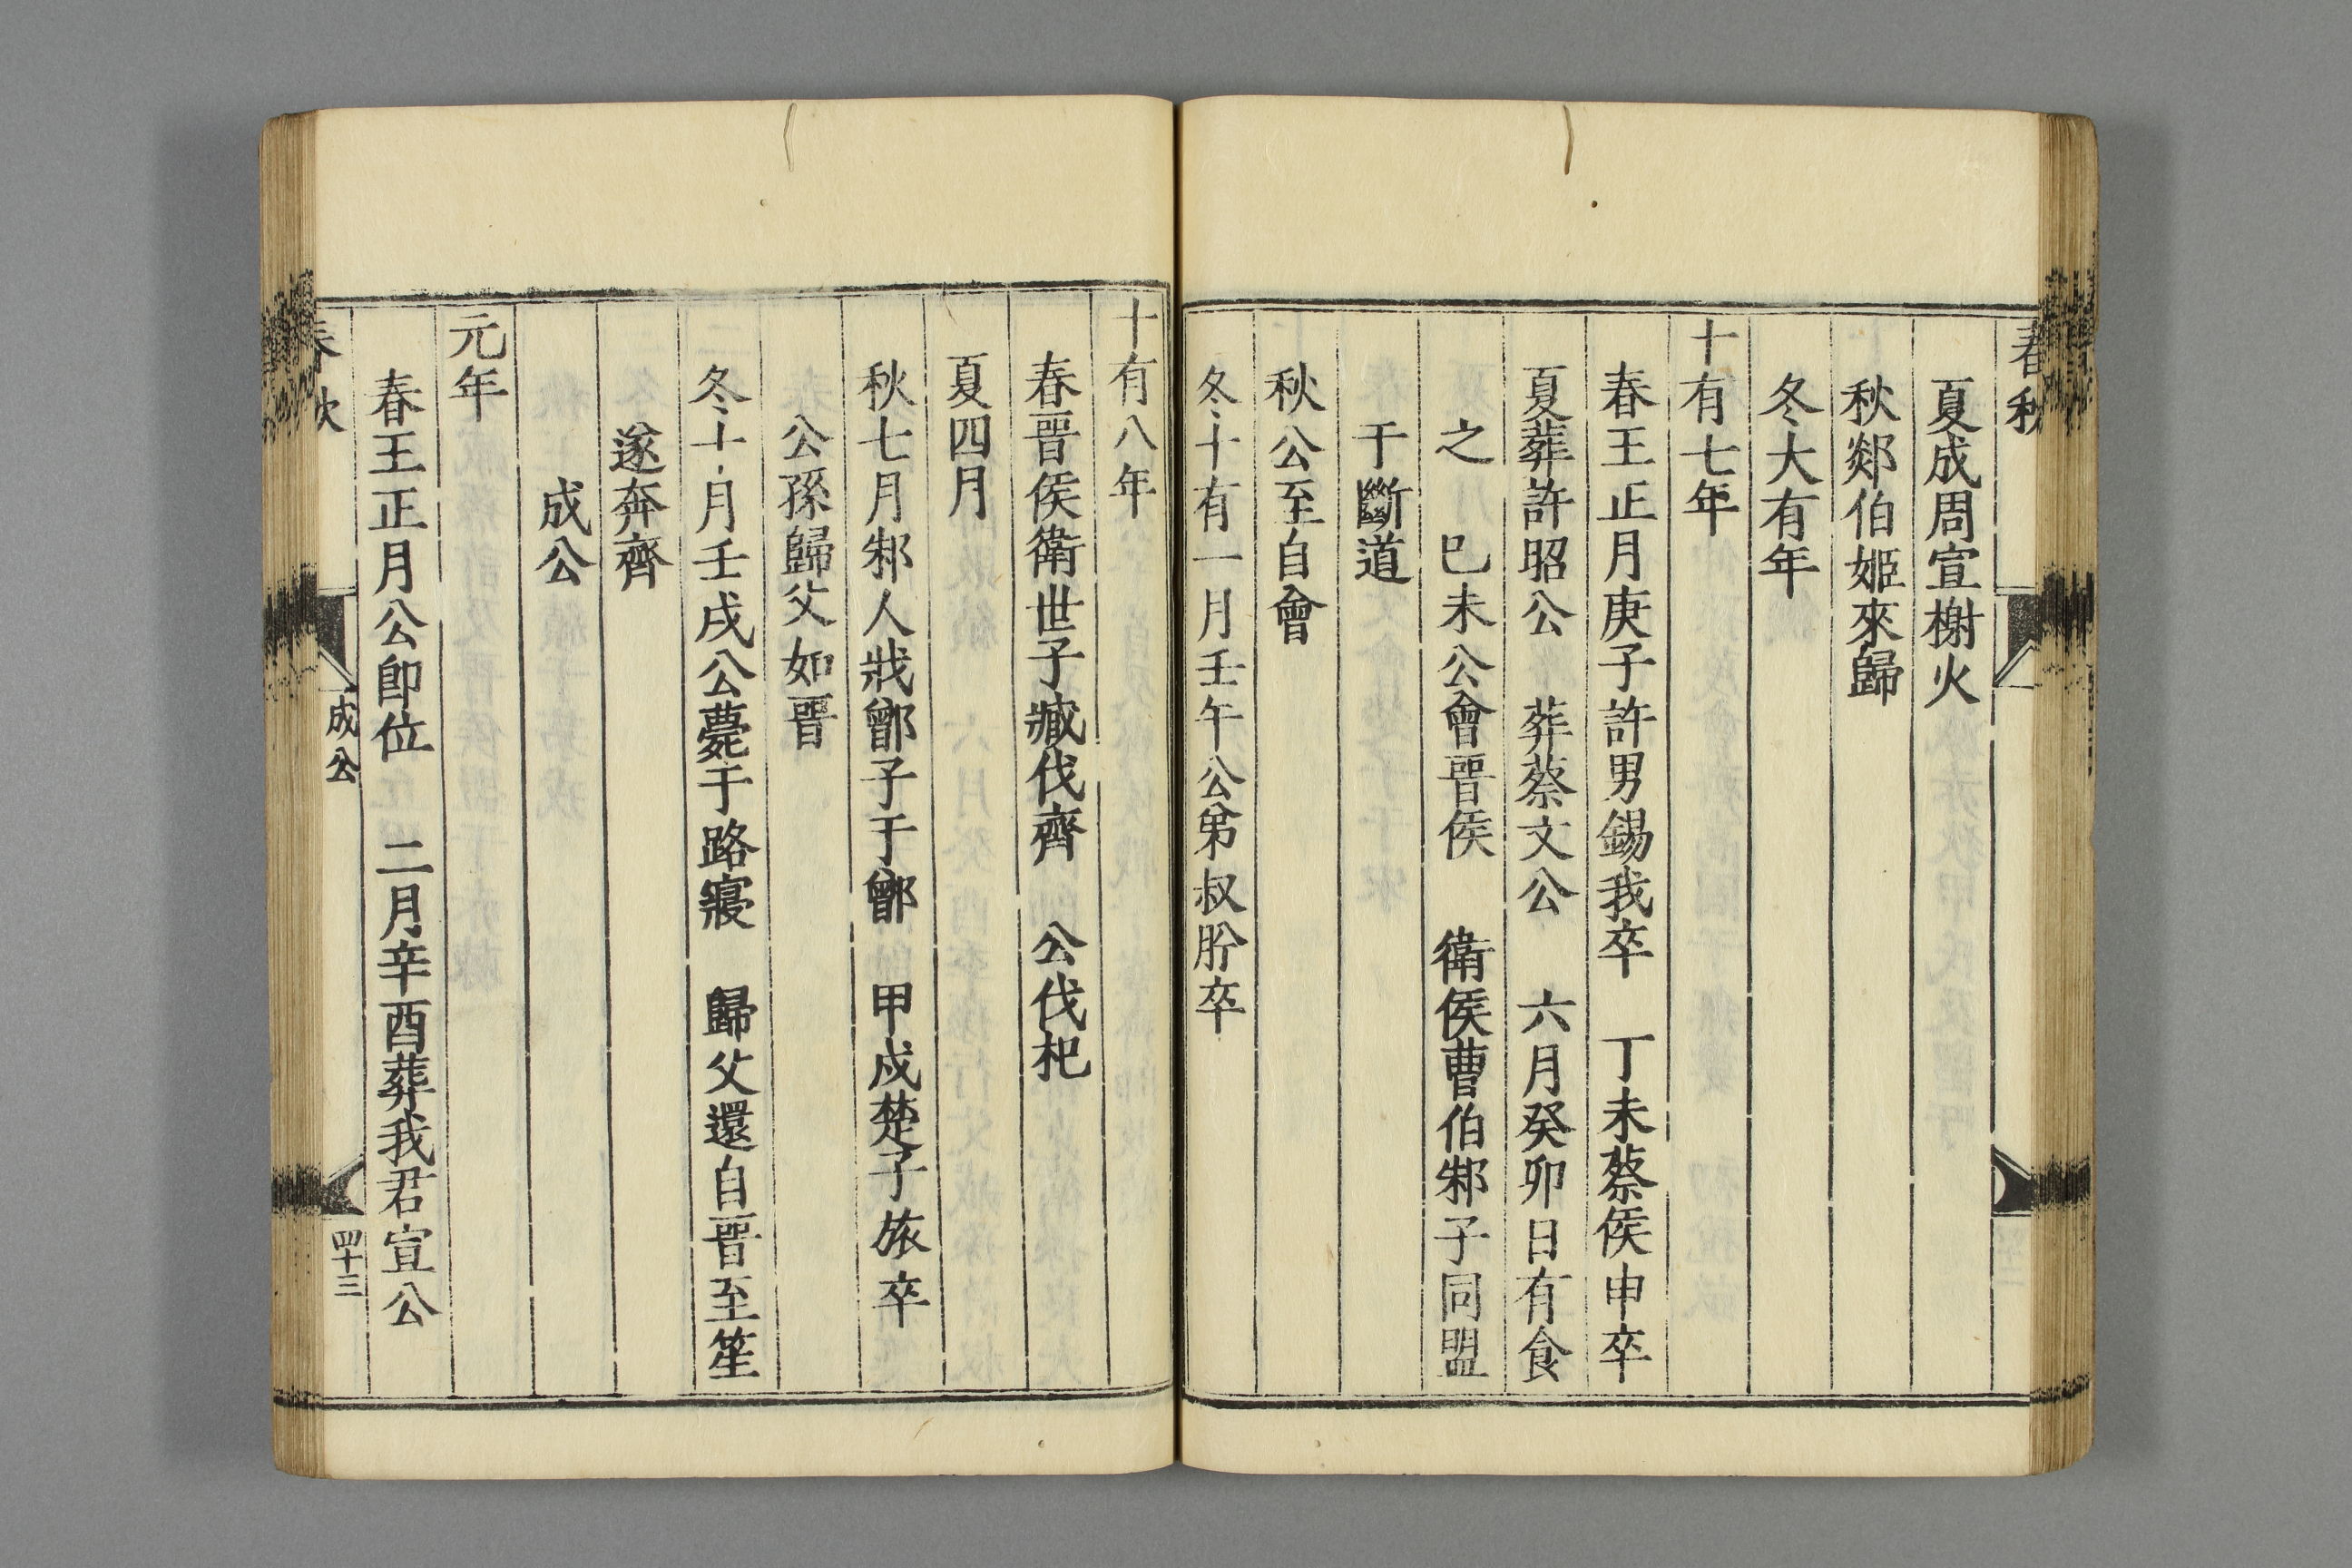 春秋
夏成周宣榭火
秋郯伯姬來歸
冬大有年
十有七年
春王正月庚子許男錫我卒　丁未蔡侯申卒
夏葬許昭公　葬蔡文公　六月癸卯日有食
之　巳未公會晉侯　衛侯曹伯邾子同盟
于斷道
秋公至自會
冬十有一月壬午公弟叔肸卒
十有八年
春晉侯衛世子臧伐齊　公伐杞
夏四月
秋七月邾人戕鄫子于鄫　甲戌楚子旅卒
公孫歸父如晉
冬十月壬戌公薨于路寢　歸父還自晉至笙
遂奔齊
成公
元年
春王正月公卽位　二月辛酉葬我君宣公
春秋
成公
四十三